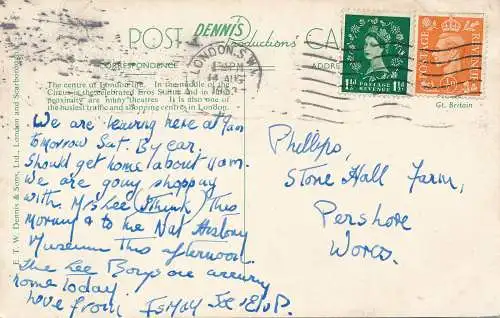 POST DENNIS CARD
Productions
CORRESPONDENCE
ADDRESS
LONDON. S.W.1
PM
14 AUG
POSTAGE REVENUE
1½D POSTAGE REVENUE 1½D
POSTAGE REVENUE
Gt. Britain
The centre of London life. In the middle of the
Circus is the celebrated Eros Statue and in close
proximity are many theatres. It is also one of
the busiest traffic and shopping centres in London.
E. T. W. Dennis & Sons, Ltd., London and Scarborough
We are leaving here at 9am
tomorrow Sat. By car.
Should get home about 11am.
We are going shopping
with Mrs Lee I think this
morning & to the Nat History
Museum this afternoon.
The Lee Boys are
home today.
Love from
Phillips,
Stone Hall Farm,
Pershore
Worcs.